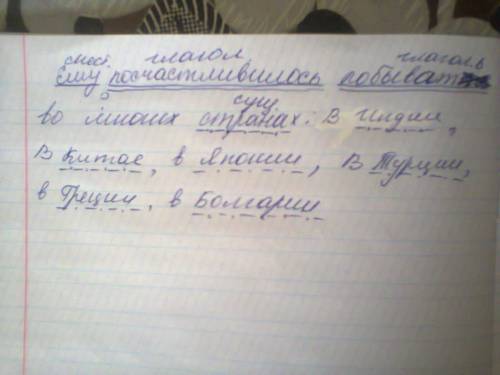 мест. глагол глаголь
Ему посчастливилось побывать
сущ.
во многих странах: В Индии,
в Китае, в Японии, в Турции,
в Греции, в Болгарии